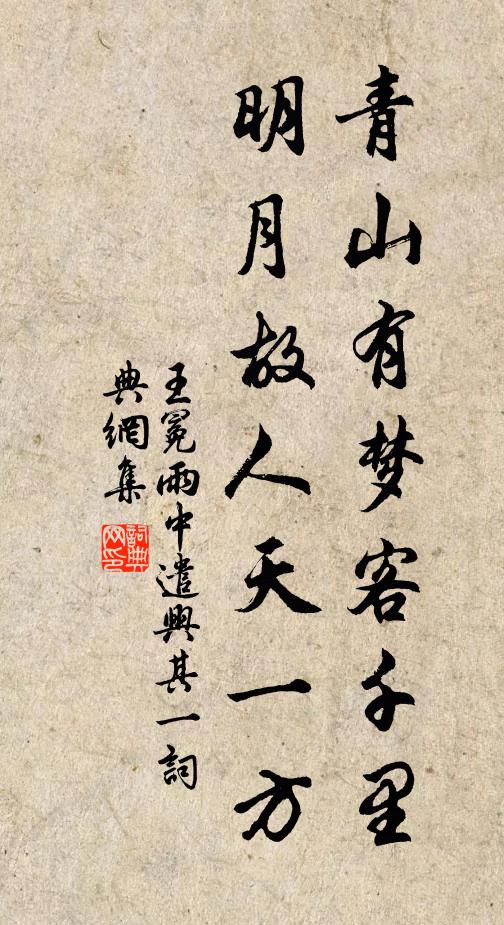 青山有梦客千里
明月故人天一方
王冕雨中遣興其一詞
典網集
詞典
网印